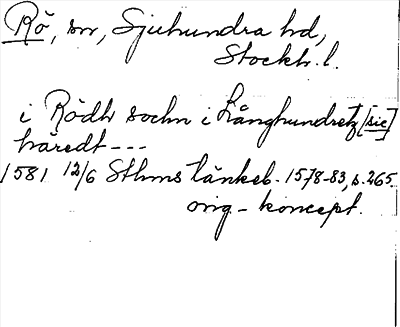 Rö, sn, Sjuhundra hd,
Stockh. l.
i Rödh sochn i Långhundretz [sic]
häredt ---
1581 12/6 Sthms tänkeb. 1578-83, s. 265.
orig - koncept.